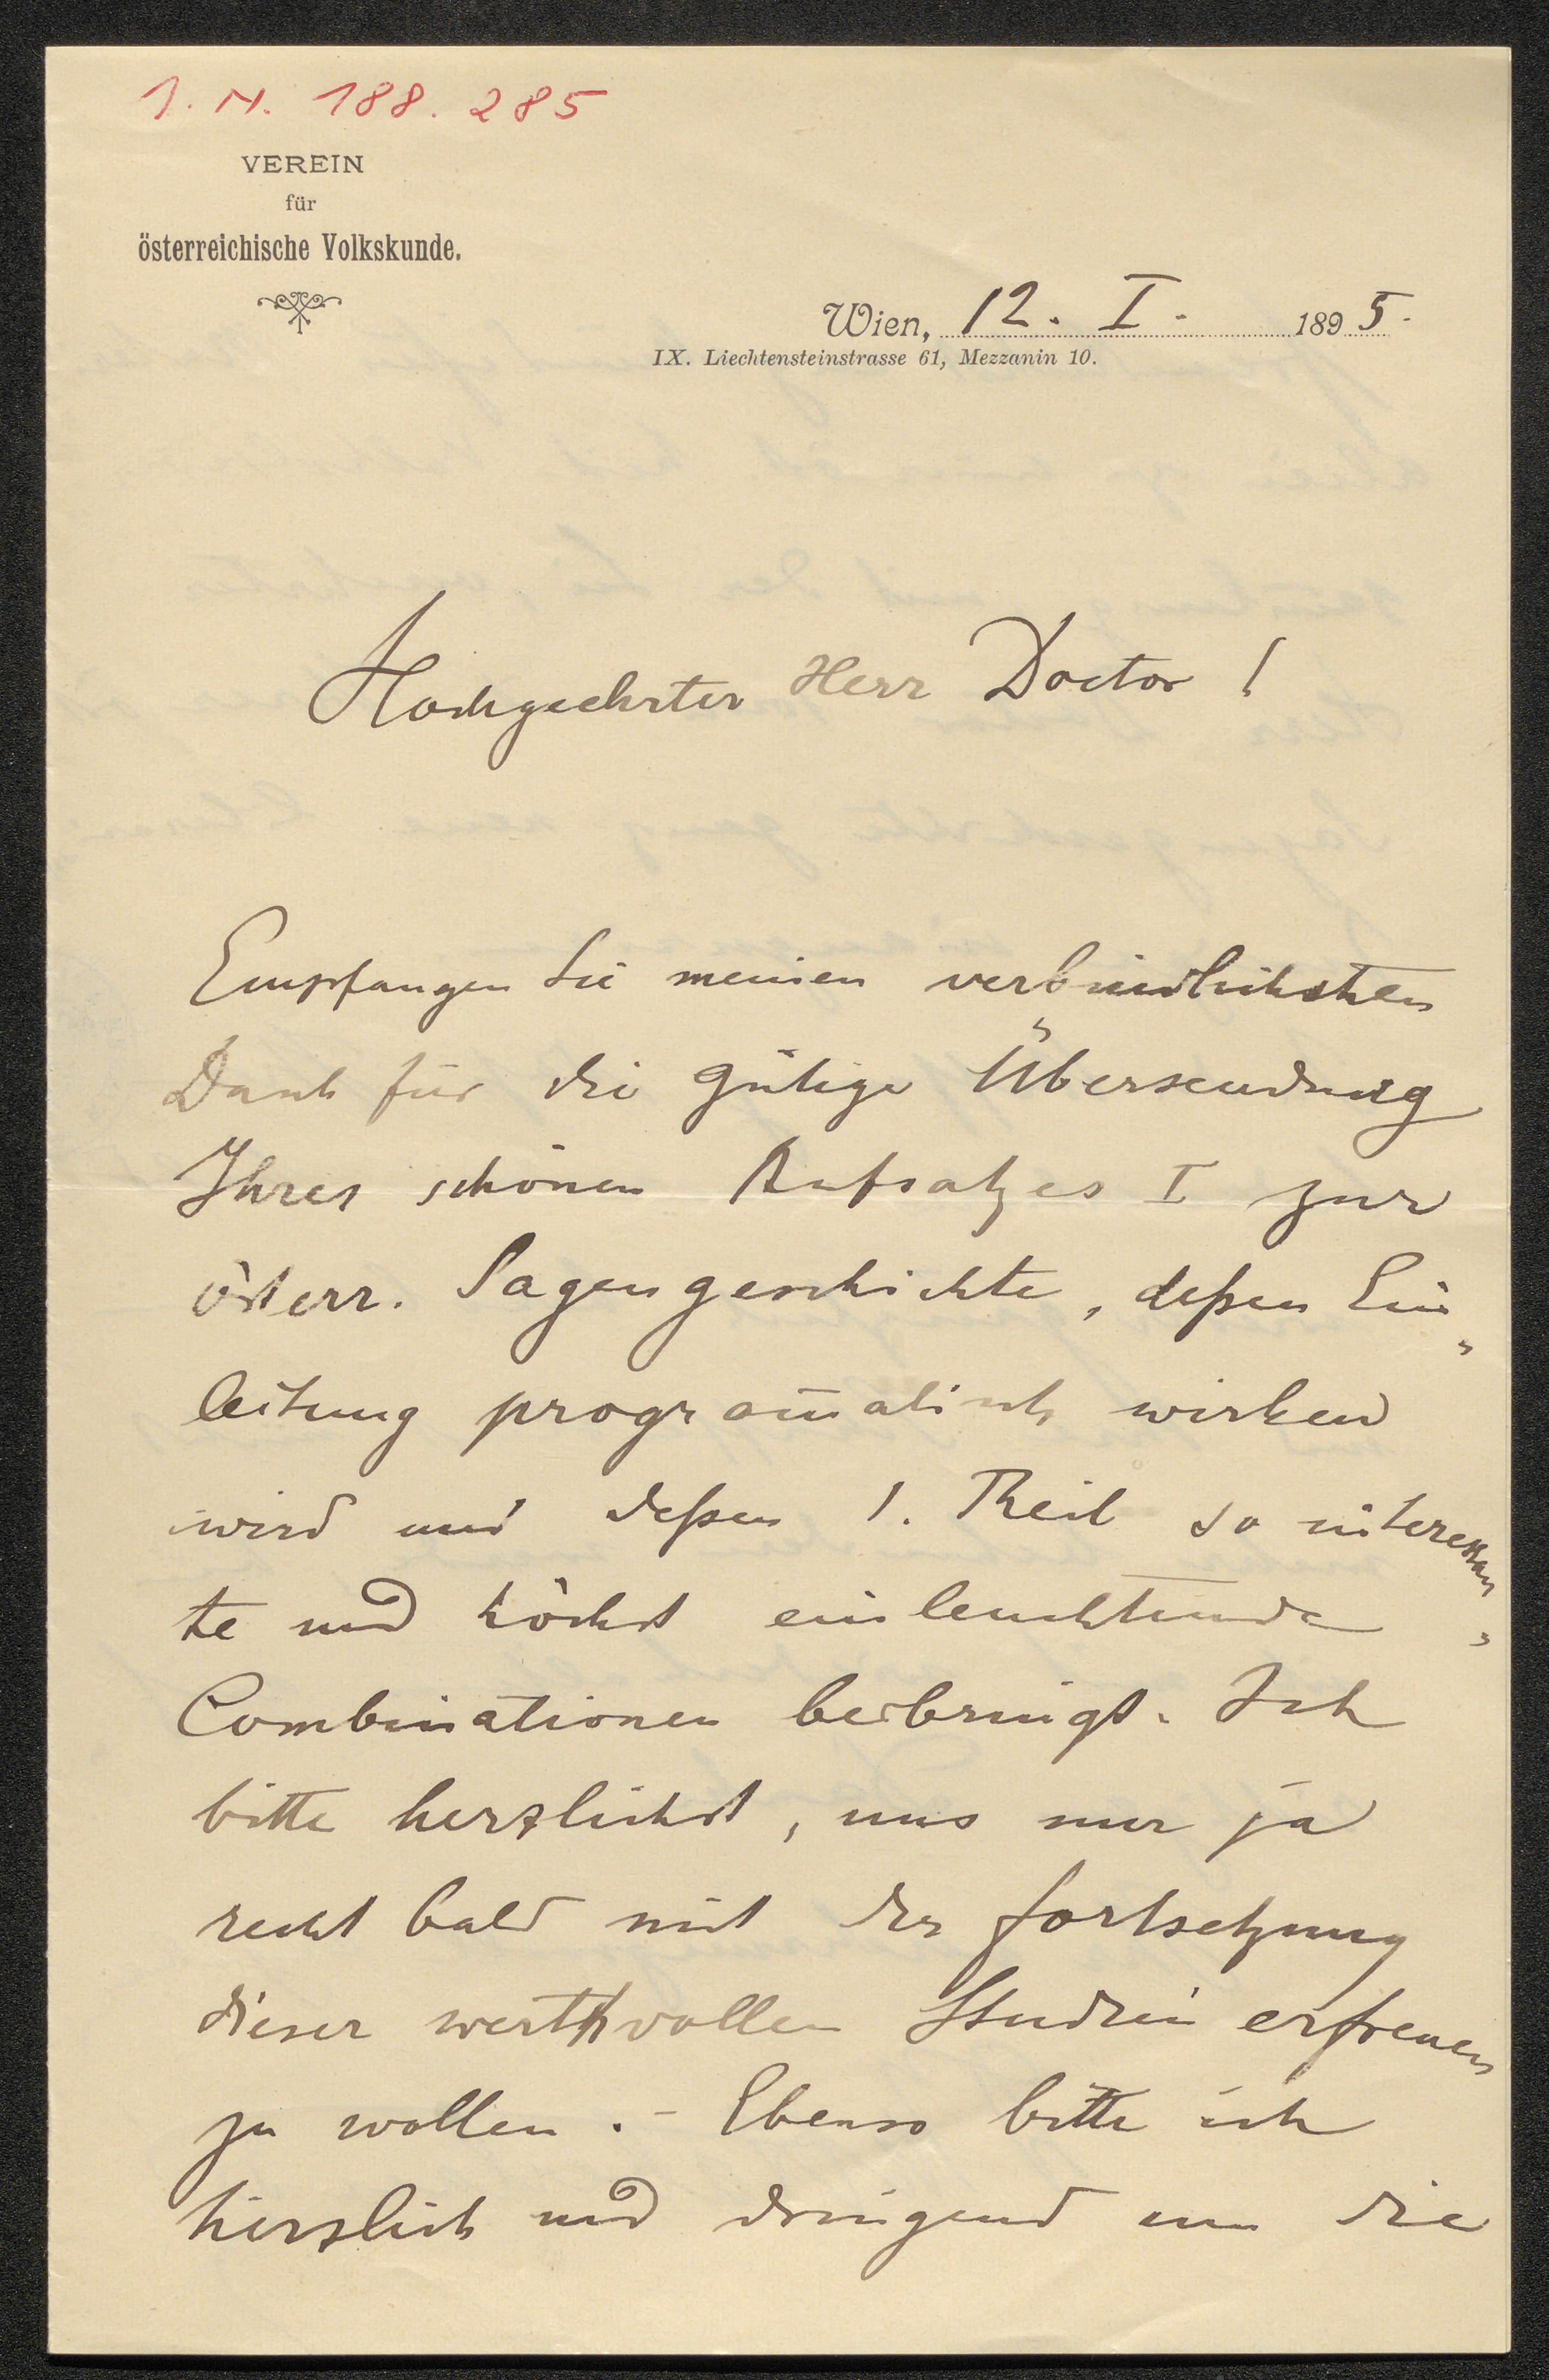 I. N. 188.285
VEREIN
für
österreichische Volkskunde.
Wien, 12. I. 1895.
IX. Liechtensteinstrasse 61, Mezzanin 10.
Hochgeehrter Herr Doctor!
Empfangen Sie meinen verbindlichsten
Dank für die gütige Übersendung
Ihres schönen Aufsatzes I zur
österr. Sagengeschichte, deßen Ein„
leitung programm̄atisch wirken
wird und deßen 1. Theil so interessan„
te und höchst einleuchtende
Combinationen beibringt. Ich
bitte herzlichst, uns nur ja
recht bald mit der Fortsetzung
dieser werthvollen Studien erfreuen
zu wollen. – Ebenso bitte ich
herzlich und dringend um die